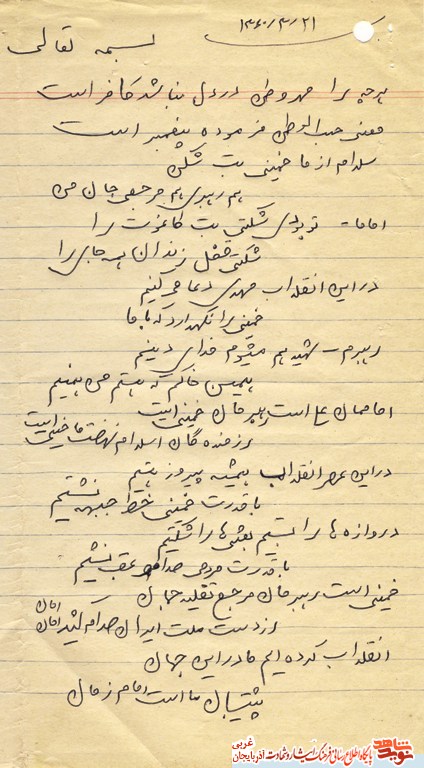 ۱۳۶۰/۳/۲۱
بسمه تعالی
هرچه را مهر وطن در دل نباشد کافر است
معنی حب الوطن فرموده پیغمبر است
سلام از ما خمینی بت شکن
هم رهبری هم مرجعی جان من
اماما - تو بودی شکستی بت طاغوت را
شکستی قفل زندان همه جای را
در این انقلاب مهدی دعا می کنیم
خمینی را نگهدارد که با ما
رهبرم - شهید هم میشوم فدای دینم
همین خاکم که هستم من همینم
امامان است رهبرمان خمینی است
رزمنده گان اسلام نهضت ما خمینی است
در این عصر انقلاب همیشه پیروز هستیم
با قدرت خمینی خط جبهه نشستیم
دروازه ها را بستیم بعثی ها را شکستیم
با قدرت صدام عقب نشستیم
خمینی است رهبرمان مرجع تقلید جهان
از دست ملت ایران صدام کشد امان امان
انقلاب کرده ایم ما در این جهان
پشتیبان ما است امام زمان
نوید شاهد
پایگاه اطلاع رسانی فرهنگ ایثار و شهادت آذربایجان غربی